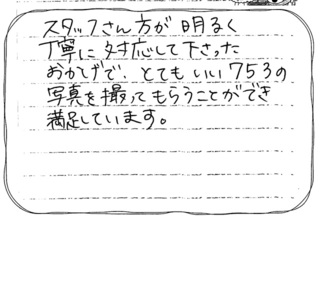 スタッフさん方が明るく
丁寧に対応して下さった
おかげで、とてもいい753の
写真を撮ってもらうことができ
満足しています。